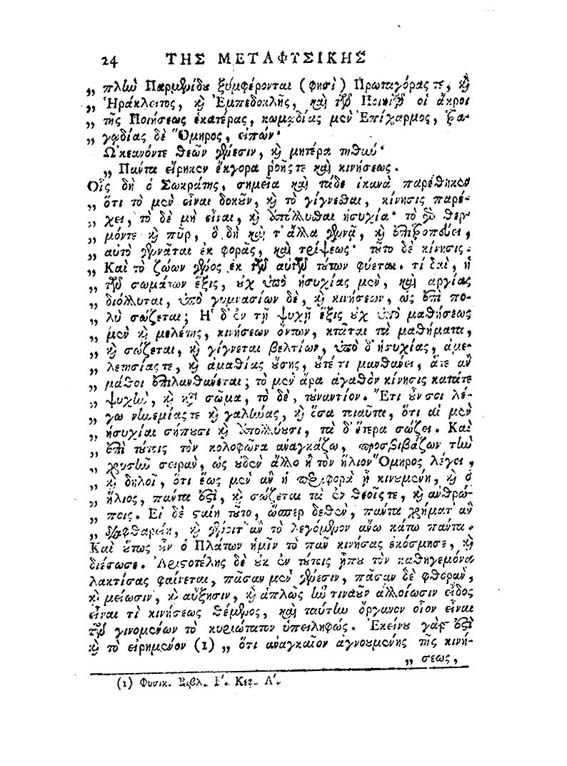 24 ΤΗΣ ΜΕΤΑΦΥΣΙΚΗΣ
„ πλὴν Παρμενίδου ξυμφέρονται (φησὶ) Πρωταγόρας τε, καὶ
„ Ἡράκλειτος, καὶ Ἐμπεδοκλῆς, καὶ τῶν Ποιητῶν οἱ ἄκροι
„ τῆς Ποιήσεως ἑκατέρας, κωμῳδίας μὲν Ἐπίχαρμος, τρα-
„ γῳδίας δὲ Ὅμηρος, εἰπών·
Ὠκεανόντε θεῶν γένεσιν, καὶ μητέρα τηθύν·
„ Πάντα εἴρηκεν ἔκγονα ῥοῆς τε καὶ κινήσεως.
Οἷς δὴ ὁ Σωκράτης, σημεῖα καὶ τάδε ἱκανὰ παρέθηκεν
„ ὅτι τὸ μὲν εἶναι δοκοῦν, καὶ τὸ γίγνεσθαι, κίνησις παρέ-
„ χει, τὸ δὲ μὴ εἶναι, καὶ ἀπόλλυσθαι ἡσυχία· τὸ γὰρ θερ-
„ μόντε καὶ πῦρ, ὃ δὴ καὶ τ' ἄλλα γεννᾷ, καὶ ἐπιτροπεύει,
„ αὐτὸ γεννᾶται ἐκ φορᾶς, καὶ τρίψεως· τοῦτο δὲ κίνησις.
„ Καὶ τὸ ζώων γένος ἐκ τῶν αὐτῶν τούτων φύεται. τί δαὶ, ἡ
„ τῶν σωμάτων ἕξις, οὐχ ὑπὸ ἡσυχίας μὲν, καὶ ἀργίας
„ διόλλυται, ὑπὸ γυμνασίων δὲ, καὶ κινήσεων, ὡς ἐπὶ πο-
„ λὺ σώζεται; Ἡ δ' ἐν τῇ ψυχῇ ἕξις οὐχ ὑπὸ μαθήσεως
„ μὲν καὶ μελέτης, κινήσεων ὄντων, κτᾶται τὰ μαθήματα,
„ καὶ σώζεται, καὶ γίγνεται βελτίων, ὑπὸ δ' ἡσυχίας, ἀμε-
„ λετησίας τε, καὶ ἀμαθίας οὔσης, οὔτέ τι μανθάνει, ἅτε ἂν
„ μάθοι ἐπιλανθάνεται; τὸ μὲν ἄρα ἀγαθὸν κίνησις κατάτε
„ ψυχὴν, καὶ κατὰ σῶμα, τὸ δὲ, τοὐναντίον. Ἔτι οὖν σοι λέ-
„ γω νηνεμίας τε καὶ γαλήνας, καὶ ὅσα τοιαῦτα, ὅτι αἱ μὲν
„ ἡσυχίαι σήπουσι καὶ ἀπολλύουσι, τὰ δ' ἕτερα σώζει. Καὶ
„ ἐπὶ τούτοις τὸν κολοφῶνα ἀναγκάζω, προσβιβάζων τὴν
„ χρυσῆν σειρὰν, ὡς οὐδὲν ἄλλο ἢ τὸν ἥλιον Ὅμηρος λέγει,
„ καὶ δηλοῖ, ὅτι ἕως μὲν ἂν ἡ περιφορὰ ᾖ κινουμένη, καὶ ὁ
„ ἥλιος, πάντα ἐστὶ, καὶ σώζεται τὰ ἐν θεοῖς τε, καὶ ἀνθρώ-
„ ποις. Εἰ δὲ σταίη τοῦτο, ὥσπερ δεθὲν, πάντα χρήματ' ἂν
„ διαφθαρείη, καὶ γένοιτ' ἂν τὸ λεγόμενον ἄνω κάτω πάντα.
Καὶ οὕτως ἂν ὁ Πλάτων ἡμῖν τὸ πᾶν κινήσας ἐκόσμησε, καὶ
διέσωσε. Ἀριστοτέλης δὲ οὐκ ἐν τούτοις ἥπου τὸν καθηγεμόνα
λακτίσας φαίνεται, πᾶσαν μὲν γένεσιν, πᾶσαν δὲ φθορὰν,
καὶ μείωσιν, καὶ αὔξησιν, καὶ ἁπλῶς ἣν τιναοῦν ἀλλοίωσιν εἶδος
εἶναί τι κινήσεως θέμενος, καὶ ταύτην ὄργανον οἷον εἶναι
τῶν γινομένων τὸ κυριώτατον ὑπειληφώς. Ἐκείνου γάρ ἐστι
καὶ τὸ εἰρημένον (1) „ ὅτι ἀναγκαῖον ἀγνουμένης τῆς κινή-
„ σεως,
(1) Φυσικ. Βιβλ. Γ'. Κεφ. Α'.